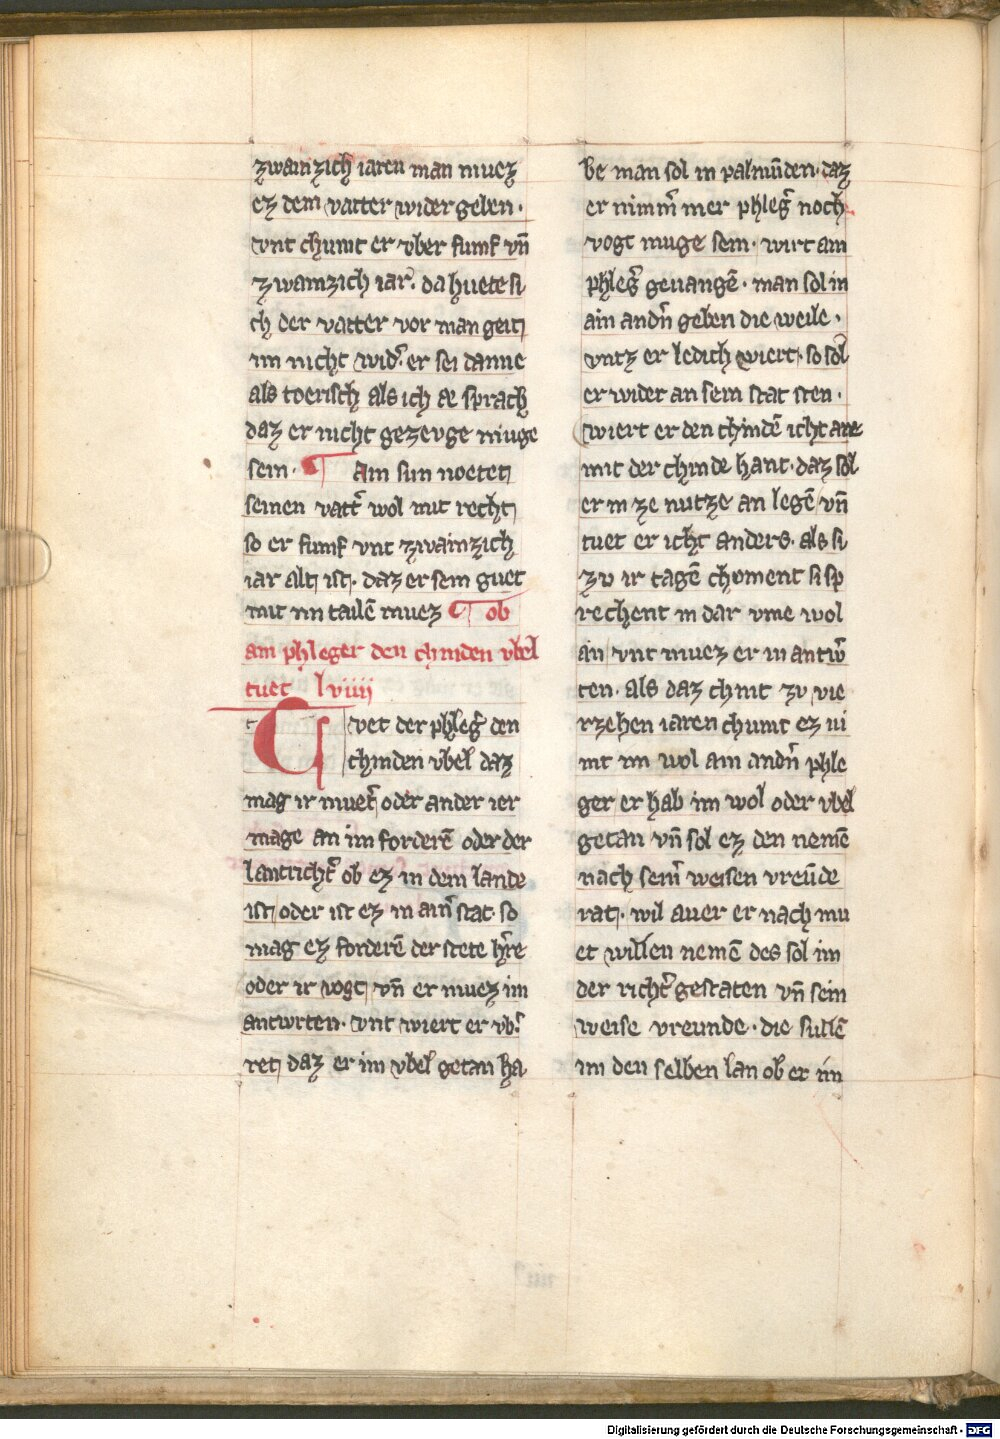 zwainzich iaren man muez
ez dem vatter wider geben·
vnt chumt er vber fumf vn̄
zwainzich iar̾· da huete si
ch der vatter vor man geit
im nicht wid̾· er sei danne
als toerisch als ich æ sprach
daz er nicht gezevge muge
sein· ¶ Ain sun noetet
seinen vatt̾ wol mit recht
so er fumf vnt zwainzich
iar alt ist· daz er sein guet
mit im tailē muez ¶ ob
ain phleger den chinden vbel
tuet lviiii
Tvet der phleg̾ den
chinden vbel daz
mag ir muet̾ oder ander ier
mage an im forderē oder der
lantricht̾ ob ez in dem lande
ist oder ist ez in ain̾ stat· so
mag ez forderē der stete h̾re
oder ir vogt vn̄ er muez im
antwrten· vnt wiert er vb̾
ret daz er im vbel getan ha
be man sol in palmūden· daz
er nimm̾ mer phleg̾ noch
vogt muge sein· wirt ain
phleg̾ geuangē· man sol in
ain andn̾ geben die weile·
vntz er ledich wiert· so sol
er wider an sein stat sten·
wiert er den chindē icht ane
mit der chinde hant· daz sol
er in ze nutze an legē vn̄
tuet er icht anders· als si
zv ir tagē choment si sp
rechent in dar vme wol
an vnt muez er in antw̾
ten· als daz chint zv vie
rzehen iaren chumt ez ni
mt im wol ain andn̾ phle
ger er hab im wol oder vbel
getan vn̄ sol ez den nemē
nach sein̾ weisen vreūde
rat· wil auer er nach mu
et willen nemē des sol im
der richt̾ gestaten vn̄ sein
weise vreunde· die sullē
im den selben lan ob er im
Digitalisierung gefördert durch die Deutsche Forschungsgemeinschaft - DFG